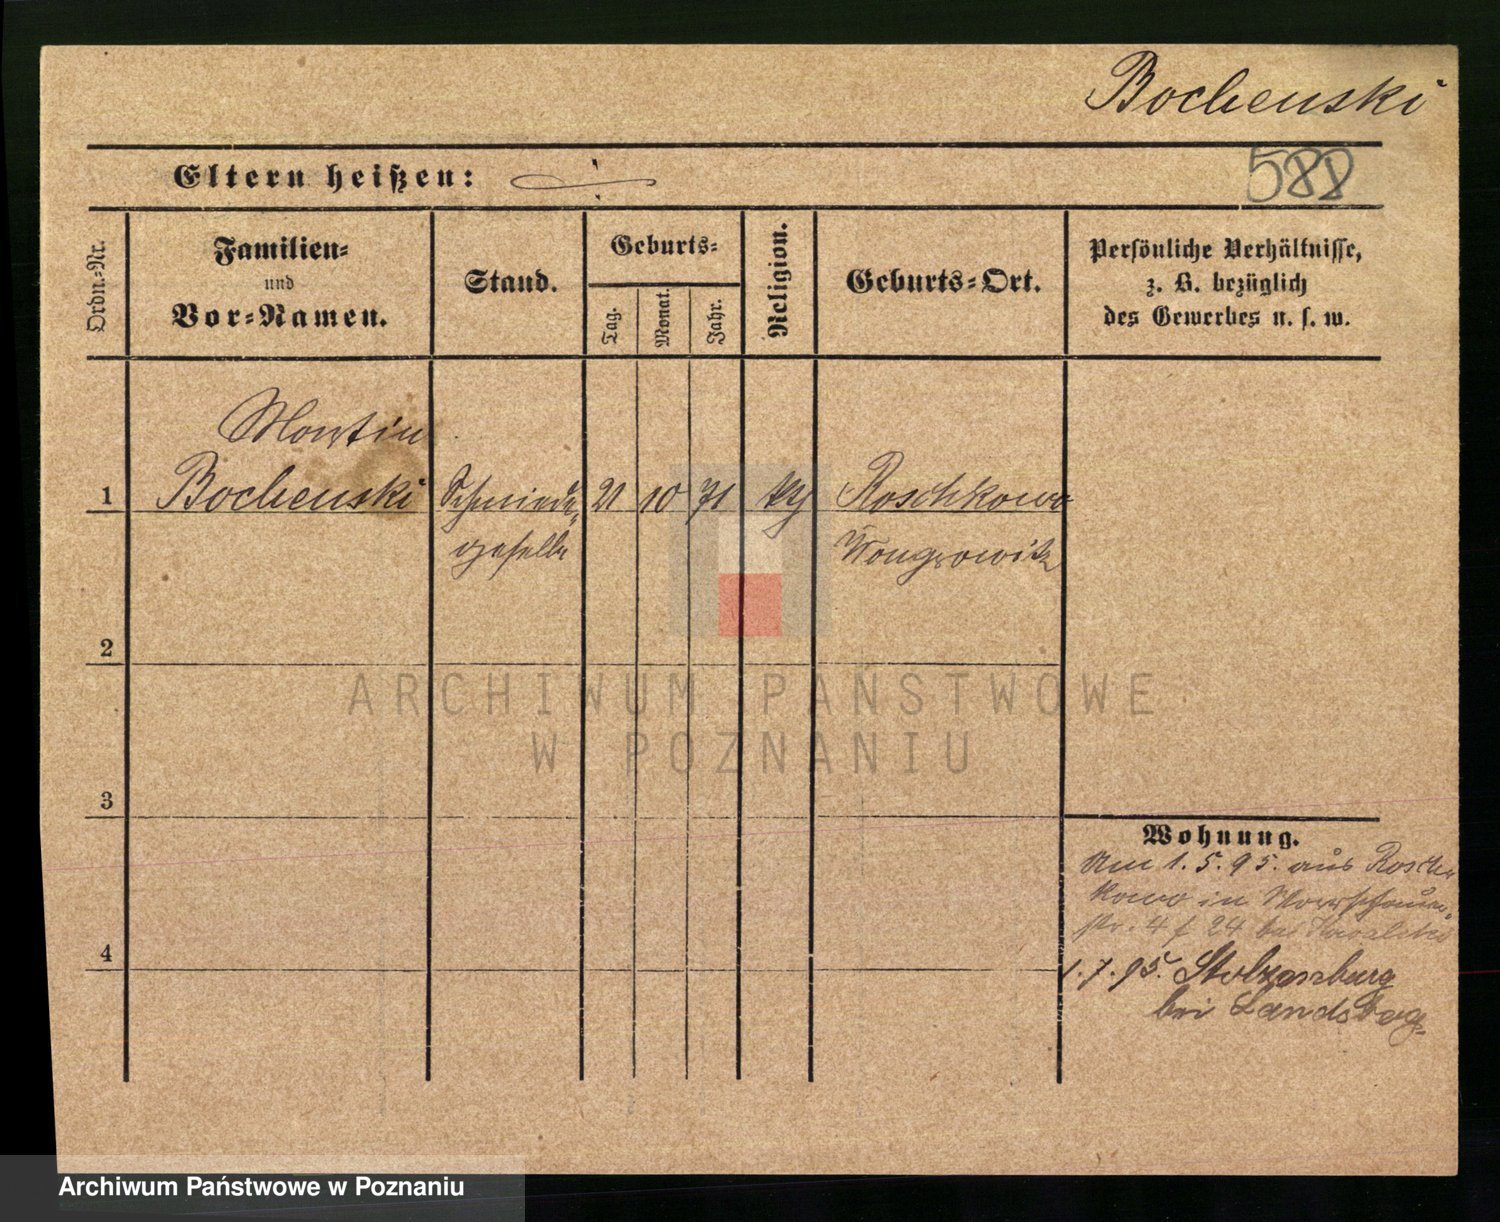 Bochenski
588
Eltern heißen: ./.
Ordn.-Nr.
Familien-
und
Vor-Namen.
Stand.
Geburts-
Tag.
Monat.
Jahr.
Religion.
Geburts-Ort.
Persönliche Verhältnisse,
z. B. bezüglich
des Gewerbes u. s. w.
Martin
1 Bochenski Schmiede- 21 10 71 Roschkowo
geselle Wongrowitz
2
3
4
Wohnung.
Am 1.5.95. aus Rosch-
kowo in Warschauer-
str. 4 f 24 bei
1.7.95. Stolzenburg
bei Landsberg
ARCHIWUM PAŃSTWOWE
W POZNANIU
Archiwum Państwowe w Poznaniu